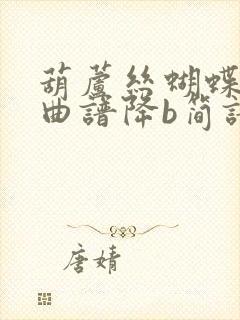 葫蘆絲蝴蝶
曲譜降b简
唐婧